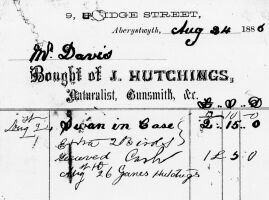 9, BRIDGE STREET,
Aberystwyth, Aug 24 1886
Mr Davis
Bought of J. HUTCHINGS,
Naturalist, Gunsmith, &c.
£ S D
Swan in Case 2 15 0
Extra 2 Birds
Received Cash 1 5 0
Aug 26 James Hutchings